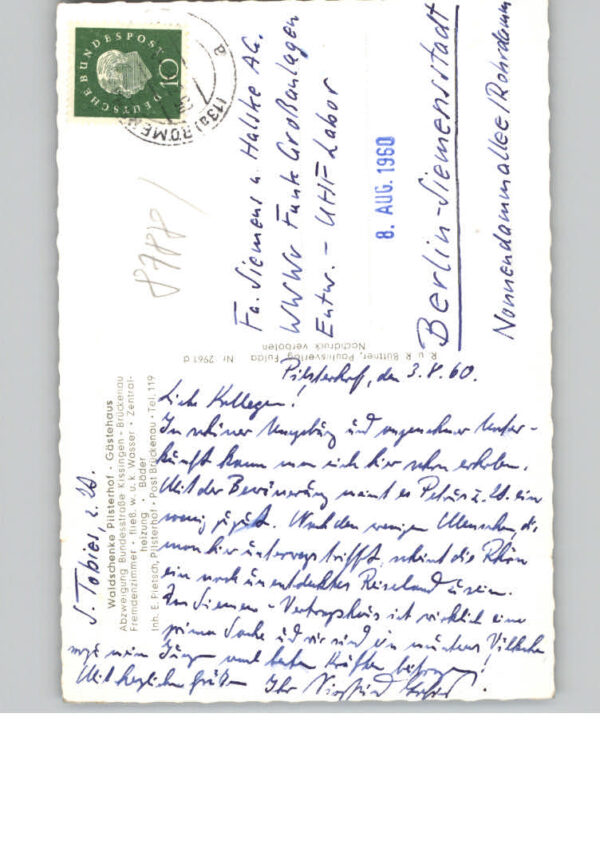 DEUTSCHE BUNDESPOST
10
(13a) RÖME
a
8788/
Fa. Siemens u. Halske AG.
WWWv Funk Großanlagen
Entw. - UHF Labor
8. AUG. 1960
Berlin-Siemensstadt
Nonnendammallee/Rohrdamm
R. u. R. Büttner, Paulinsverlag Fulda Nr. 2961 d
Nachdruck verboten
Waldschenke Pilsterhof · Gästehaus
Abzweigung Bundesstraße Kissingen - Brückenau
Fremdenzimmer · fließ. w. u. k. Wasser · Zentral-
heizung · Bäder
Inh. E. Pietsch, Pilsterhof · Post Brückenau · Tel. 119
S. Tobies, z. Zt.
Pilsterhof, den 3.8.60.
Liebe Kollegen!
In schöner Umgebung und angenehmer Unter-
kunft kann man sich hier schon erholen.
Mit der Bewässerung meint es Petrus z. Zt. ein
wenig zu gut. Nach den wenigen Menschen, die
man hier unterwegs trifft, scheint die Rhön
ein noch unentdecktes Reiseland zu sein.
Das Siemens-Vertragshaus ist wirklich eine
prima Sache und wir sind ein munteres Völkchen
mein Junge nach besten Kräften
Mit herzlichen Grüßen Ihr Siegfried Tobies.